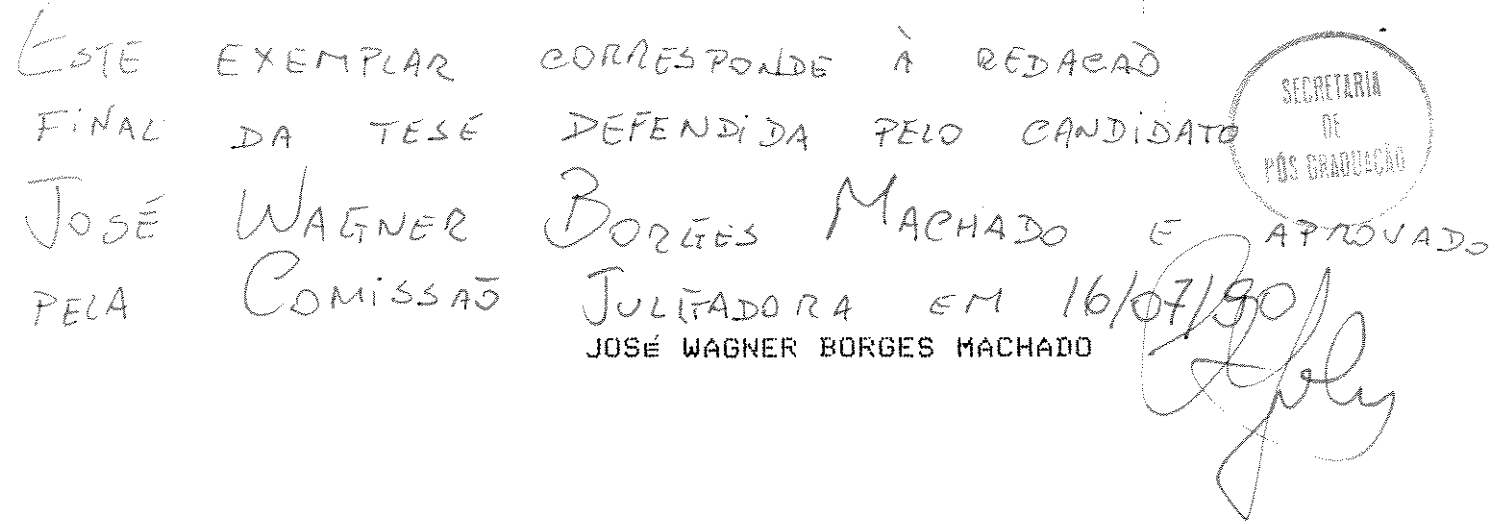 ESTE EXEMPLAR CORRESPONDE À REDAÇÃO
FINAL DA TESE DEFENDIDA PELO CANDIDATO
JOSÉ WAGNER BORGES MACHADO E APROVADO
PELA COMISSÃO JULGADORA EM 16/07/90
SECRETARIA
DE
PÓS GRADUAÇÃO
JOSÉ WAGNER BORGES MACHADO